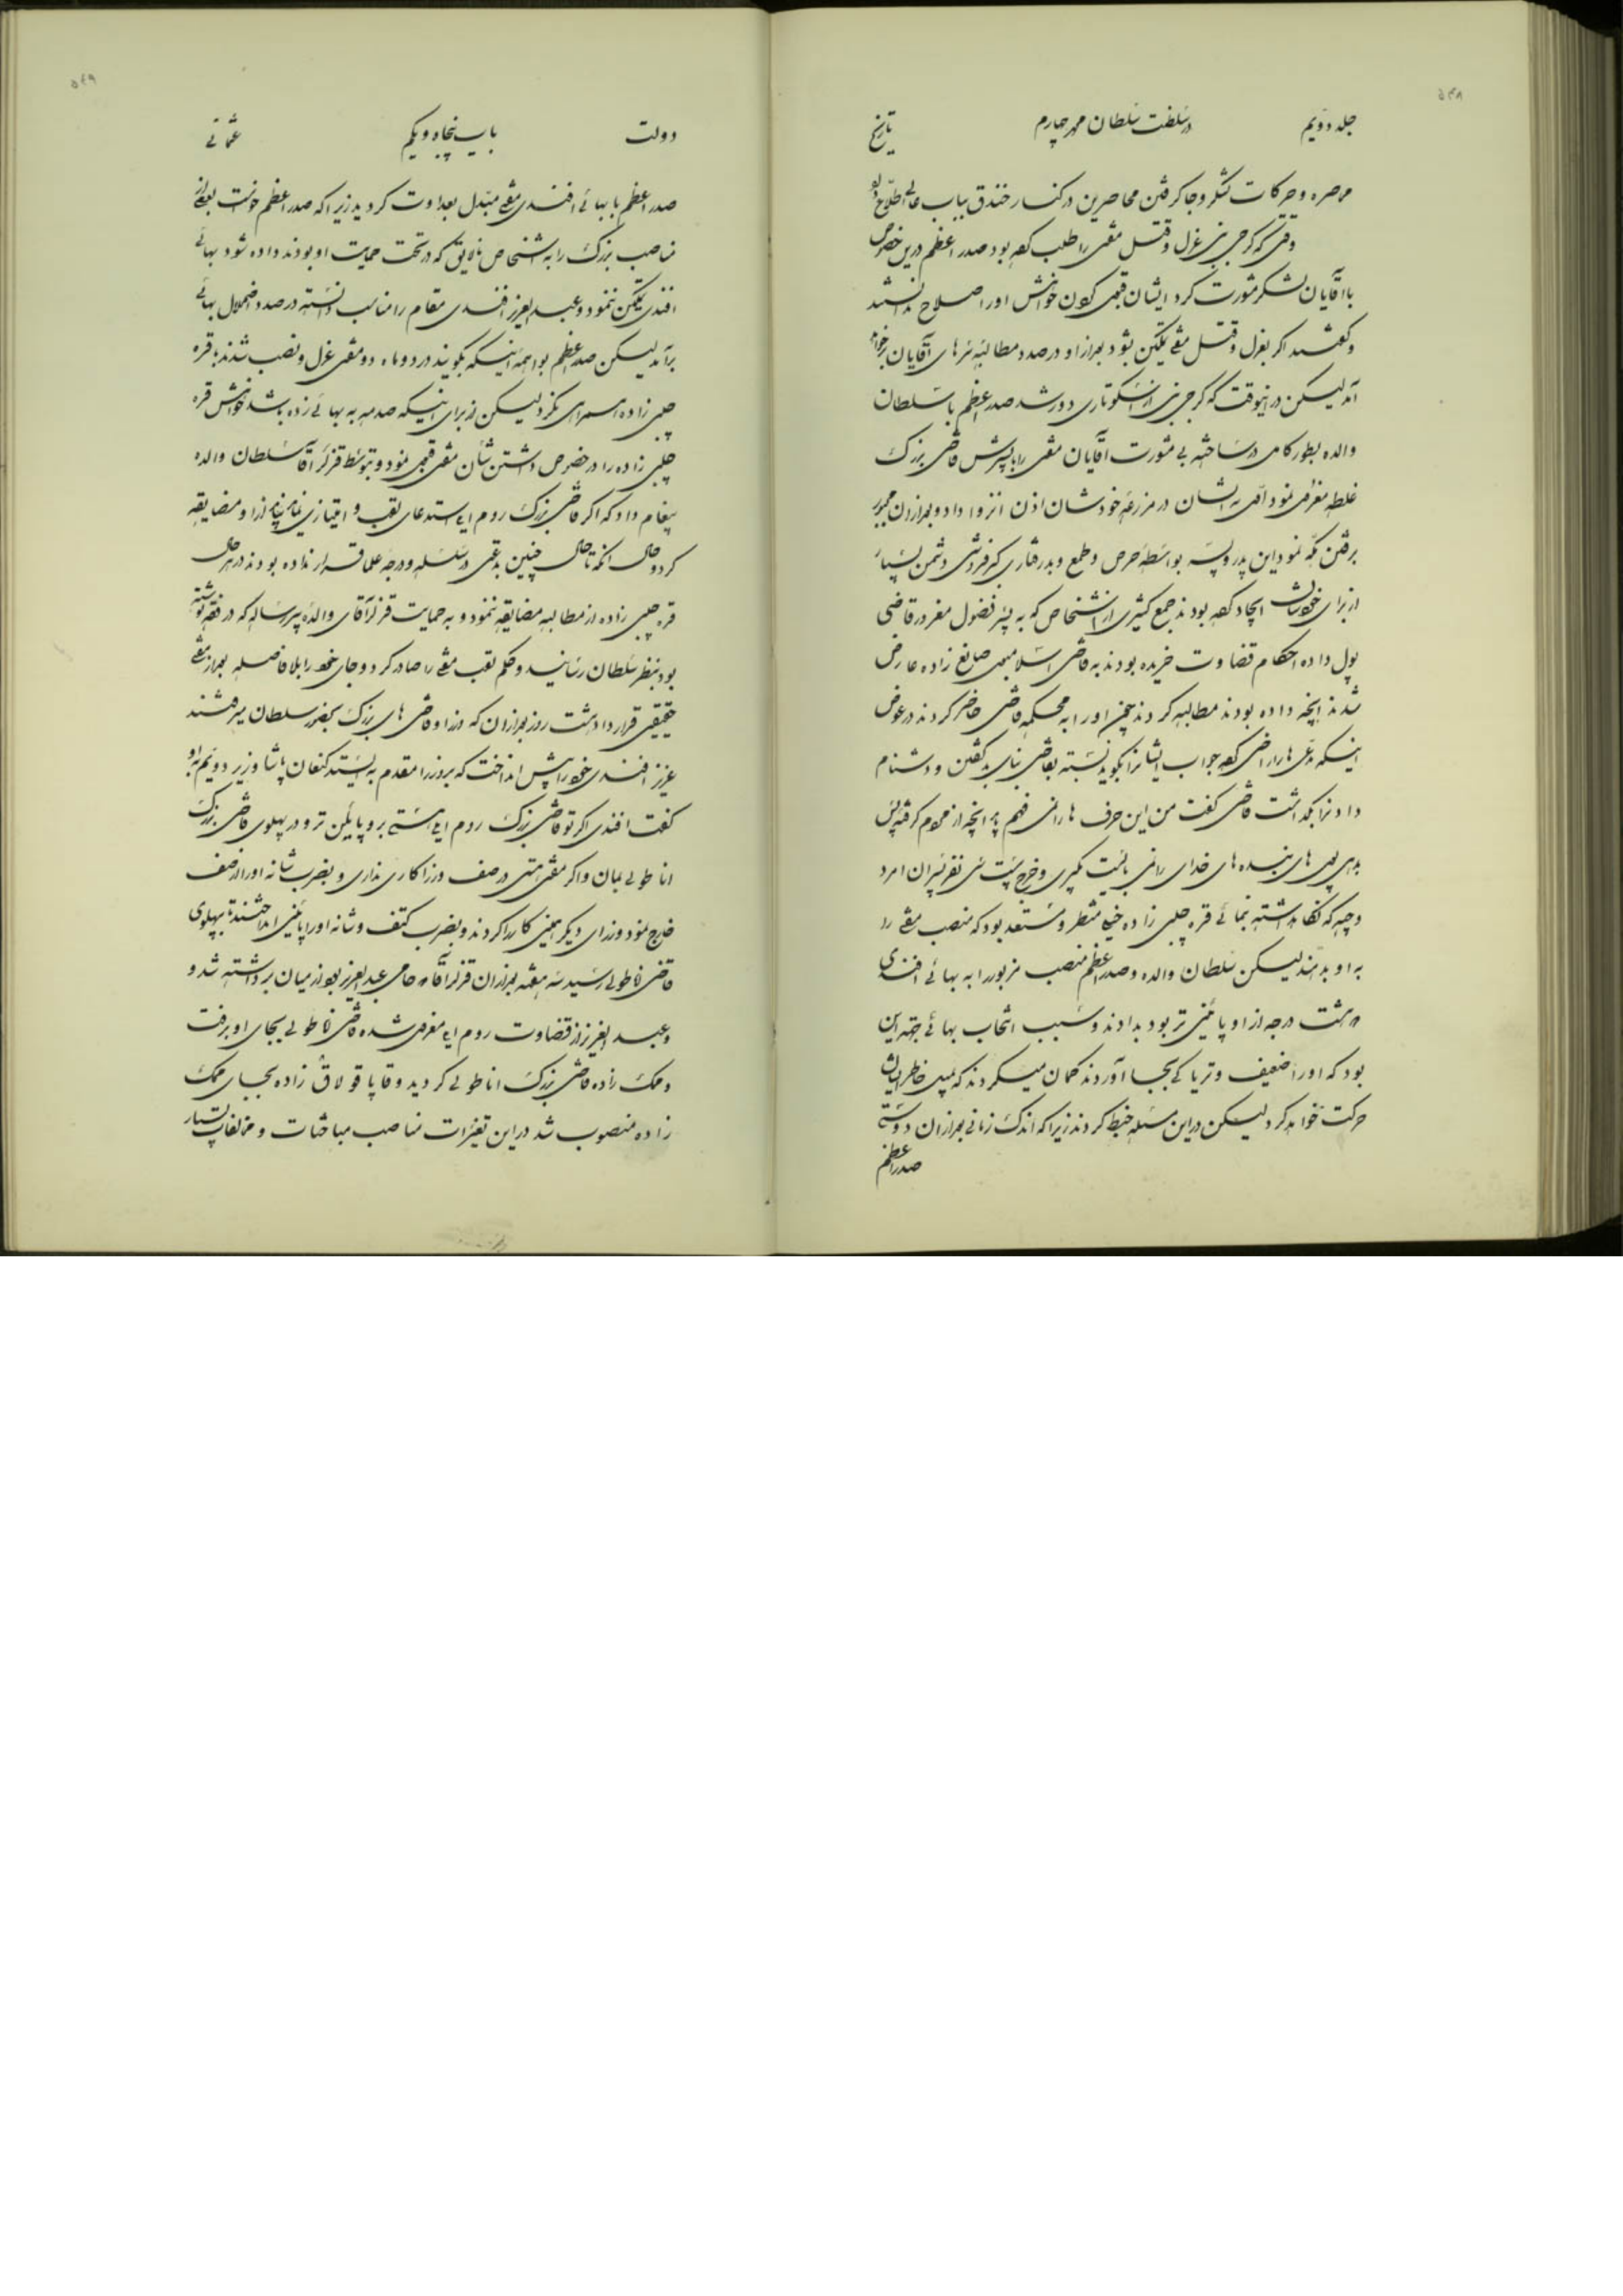 ۵۴۸
جلد دویم در سلطنت سلطان محمد چهارم تاریخ
محاصره و حرکات لشکر و جا گرفتن محاصرین در کنار خندق بباب عالی اطلاع داد
وقتی که گرجی نبی عزل و قتل مفتی را طلب کرده بود صدر اعظم درین خصوص
با آقایان لشکر مشورت کرد ایشان قبول کردن خواهش او را صلاح ندانستند
و گفتند اگر بعزل و قتل مفتی تمکین شود بعد از او در صدد مطالبه سرهای آقایان برخواهد
آمد لیکن در اینوقت که گرجی نبی از اسکوتاری دور شد صدر اعظم با سلطان
والده بطور کامل در ساخته بی مشورت آقایان مفتی را با پسرش قاضی بزرگ
غلطه معزول نمود اولا به ایشان در مزرعه خودشان اذن انزوا داد و بعد از آن مجبور
برفتن مکه نمود این پدر و پسر بواسطه حرص و طمع و بدرفتاری و کبرفروشی دشمن بسیار
از برای خودشان ایجاد کرده بودند جمع کثیری از اشخاص که به پسر فضول مغرور قاضی
پول داده احکام قضاوت خریده بودند به قاضی اسلامبول صانع زاده عارض
شدند آنچه داده بودند مطالبه کردند چون او را به محکمه قاضی حاضر کردند در عوض
اینکه مدعی ها را راضی کرده جواب ایشانرا بگوید نسبته بقاضی بنای بد گفتن و دشنام
دادنرا گذاشت قاضی گفت من این حرف ها را نمی فهم هر آنچه از مردم گرفته پس
بده پول های بنده های خدای را نمی بایست بگیری و خرج بیست سی نفر پسران امرد
وجیه که نگاه داشته نمائی قره چلبی زاده خیلی منتظر و مستعد بود که منصب مفتی را
به او بدهند لیکن سلطان والده و صدر اعظم منصب مزبور را به بهائی افندی
هشت درجه از او پائینی تر بود بدادند و سبب انتخاب بهائی بجهته این
بود که او را ضعیف و تریاکی بجا آوردند گمان میکردند که بمیل خاطر ایشان
حرکت خواهد کرد لیکن در این مسئله خبط کردند زیرا که اندک زمانی بعد از آن دوستی
صدر اعظم
۵۴۹
دولت باب پنجاه و یکم عثمانی
صدر اعظم با بهائی افندی مفتی مبدل بعداوت گردید زیرا که صدر اعظم خواست بعضی از
مناصب بزرگ را به اشخاص نالایق که در تحت حمایت او بودند داده شود بهائی
افندی تمکین ننمود و عبد العزیز افندی مقام را مناسب دانسته در صدد اضمحلال بهائی
برآمد لیکن صدر اعظم بواهمه اینکه بگویند در دو ماه دو مفتی عزل و نصب شدند با قره
چلبی زاده همراهی نکرد لیکن از برای اینکه صدمه به بهائی زده باشد خواهش قره
چلبی زاده را در خصوص داشتن شأن مفتی قبول نمود و بتوسط قزلر آقا سلطان والده
پیغام داد که اگر قاضی بزرگ روم ایلی استدعای لقب و امتیازی نماید نباید از او مضایقه
کرد و حال آنکه تا حال چنین بدعتی در سلسله و درجه علما قرار نداده بودند در هر حال
قره چلبی زاده از مطالبه مضایقه ننمود و به حمایت قزلر آقای والده پیر رساله که در فقه نوشته
بود بنظر سلطان رسانید و حکم لقب مفتی را صادر کرد و جای خود را بلا فاصله بعد از مفتی
حقیقی قرار داد هشت روز بعد از آن که وزرا و قاضی های بزرگ بحضور سلطان میرفتند
عزیز افندی خود را پیش انداخت که بر وزرا مقدم به ایستد کنعان پاشا وزیر دویم به او
گفت افندی اگر تو قاضی بزرگ روم ایلی هستی برو پایین تر و در پهلوی قاضی بزرگ
اناطولی بمان و اگر مفتی هستی در صف وزرا کاری نداری و بضرب شانه او را از صف
خارج نمود وزرای دیگر همین کار را کردند و بضرب کتف و شانه او را پائینی انداختند تا بپهلوی
قاضی اناطولی رسید سه هفته بعد از آن قزلر آقا که حامی عبد العزیز بود از میان برداشته شد و
و عبد العزیز از قضاوت روم ایلی معزول شده قاضی اناطولی بجای او برفت
و ممک زاده قاضی بزرگ اناطولی گردید و قاپا قولاق زاده بجای ممک
زاده منصوب شد در این تغیرات مناصب مباحثات و مخالفات بسیار